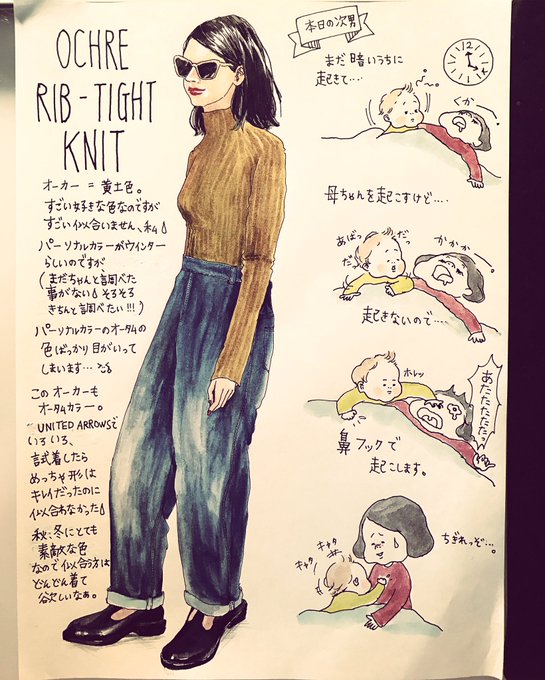 OCHRE
RIB-TIGHT
KNIT
オーカー = 黄土色。
すごい好きな色なのですが
すごい似合いません、私
パーソナルカラーがウインター
らしいのですが
(まだちゃんと調べた
事がない そろそろ
きちんと調べたい!!!)
パーソナルカラーのオータムの
色ばかり目がいって
しまいます…
このオーカーも
オータムカラー。
UNITED ARROWSで
いろいろ、
試着したら
めっちゃ形は
キレイだったのに
似合わなかった
秋、冬にとても
素敵な色
なので似合う方は
どんどん着て
欲しいなぁ。
本日の次男
まだ暗いうちに
起きて…
12
くかー。
母ちゃんを起こすけど…。
あばっ
だっ
だっ
かかかー。
起きないので…。
ホレッ
あたたたたたっ
鼻フックで
起こします。
キャタ
キャタ
ちぎれっぞ…。